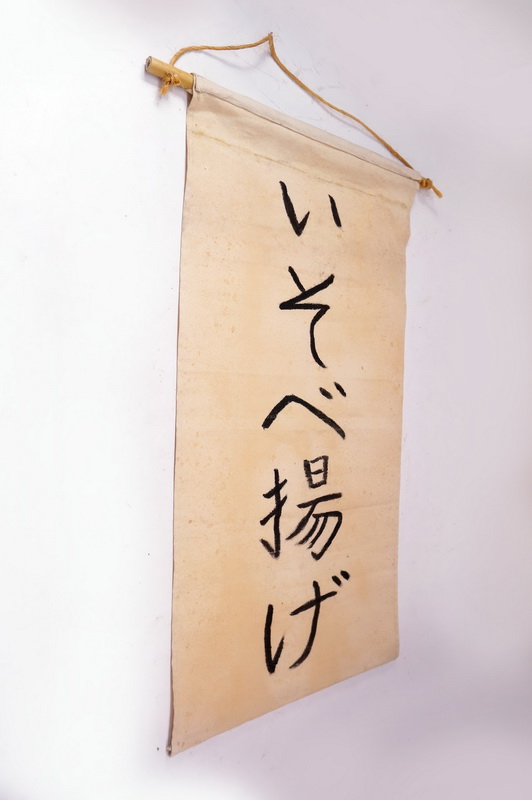 いそべ揚げ